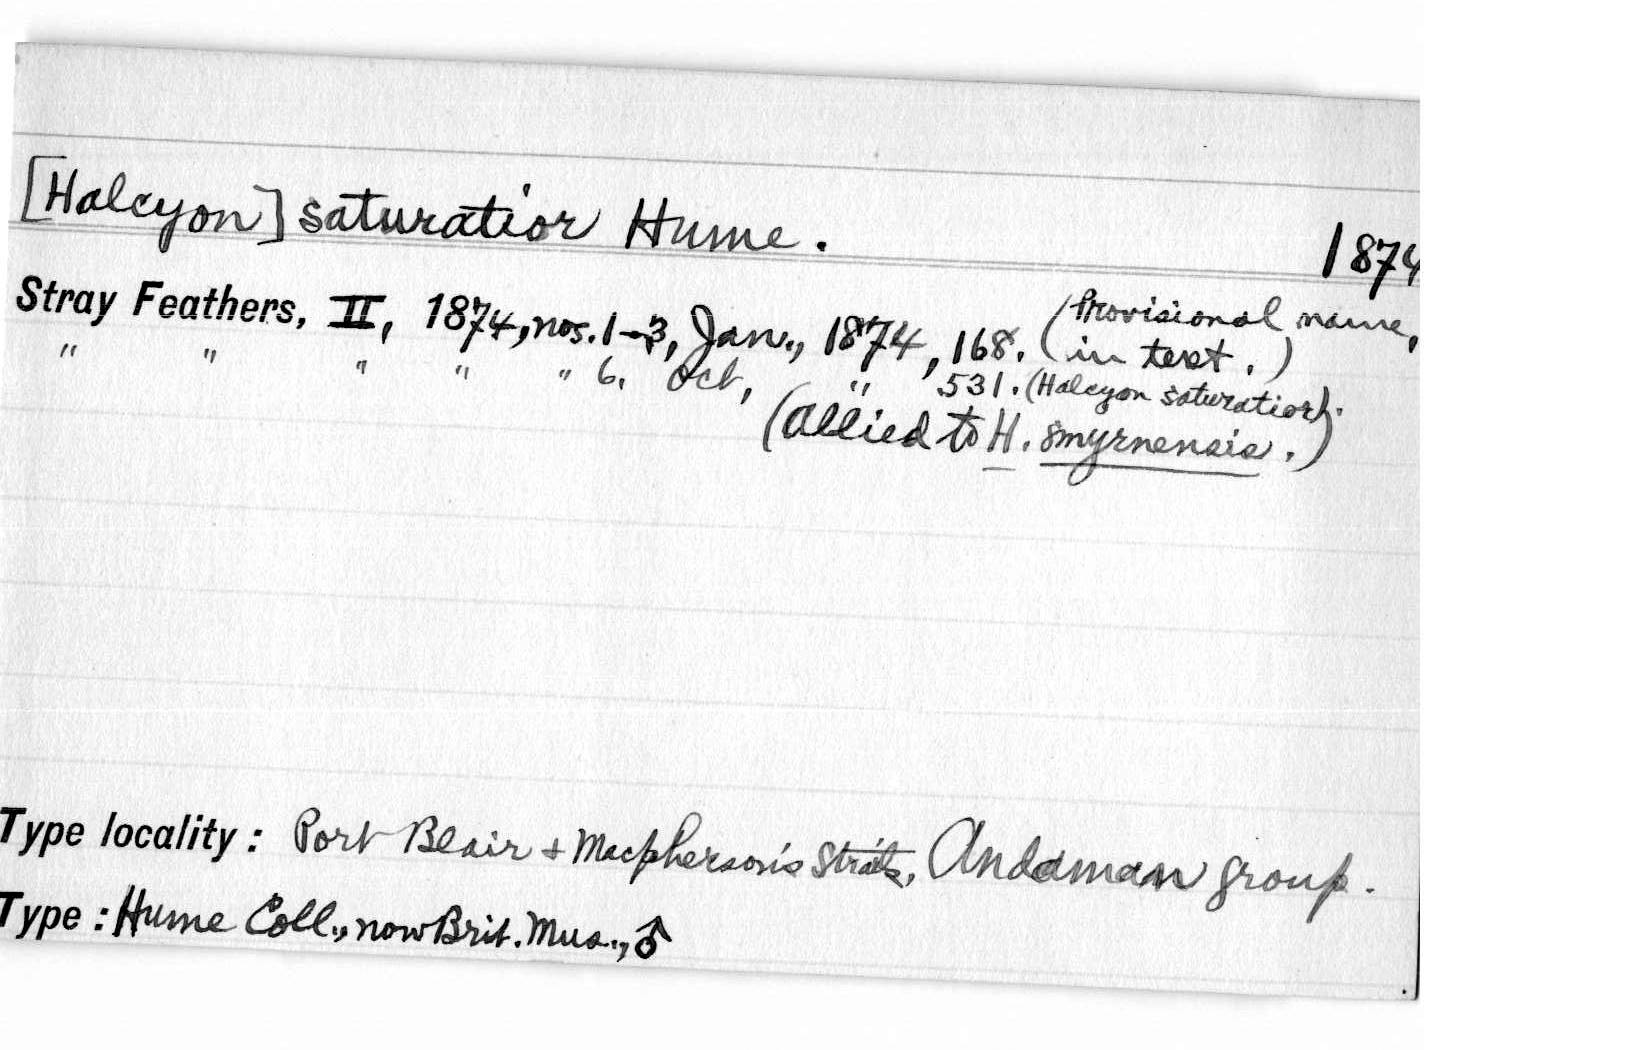 [Halcyon] saturatior Hume.
1874
Stray Feathers, II, 1874, nos. 1-3, Jan., 1874, 168. (Provisional name, in text.)
" " " " " 6. Oct, " 531. (Halcyon saturatior).
(allied to H. smyrnensis.)
Type locality: Port Blair + Macpherson's Straits, Andaman group.
Type: Hume Coll., now Brit. Mus., ♂